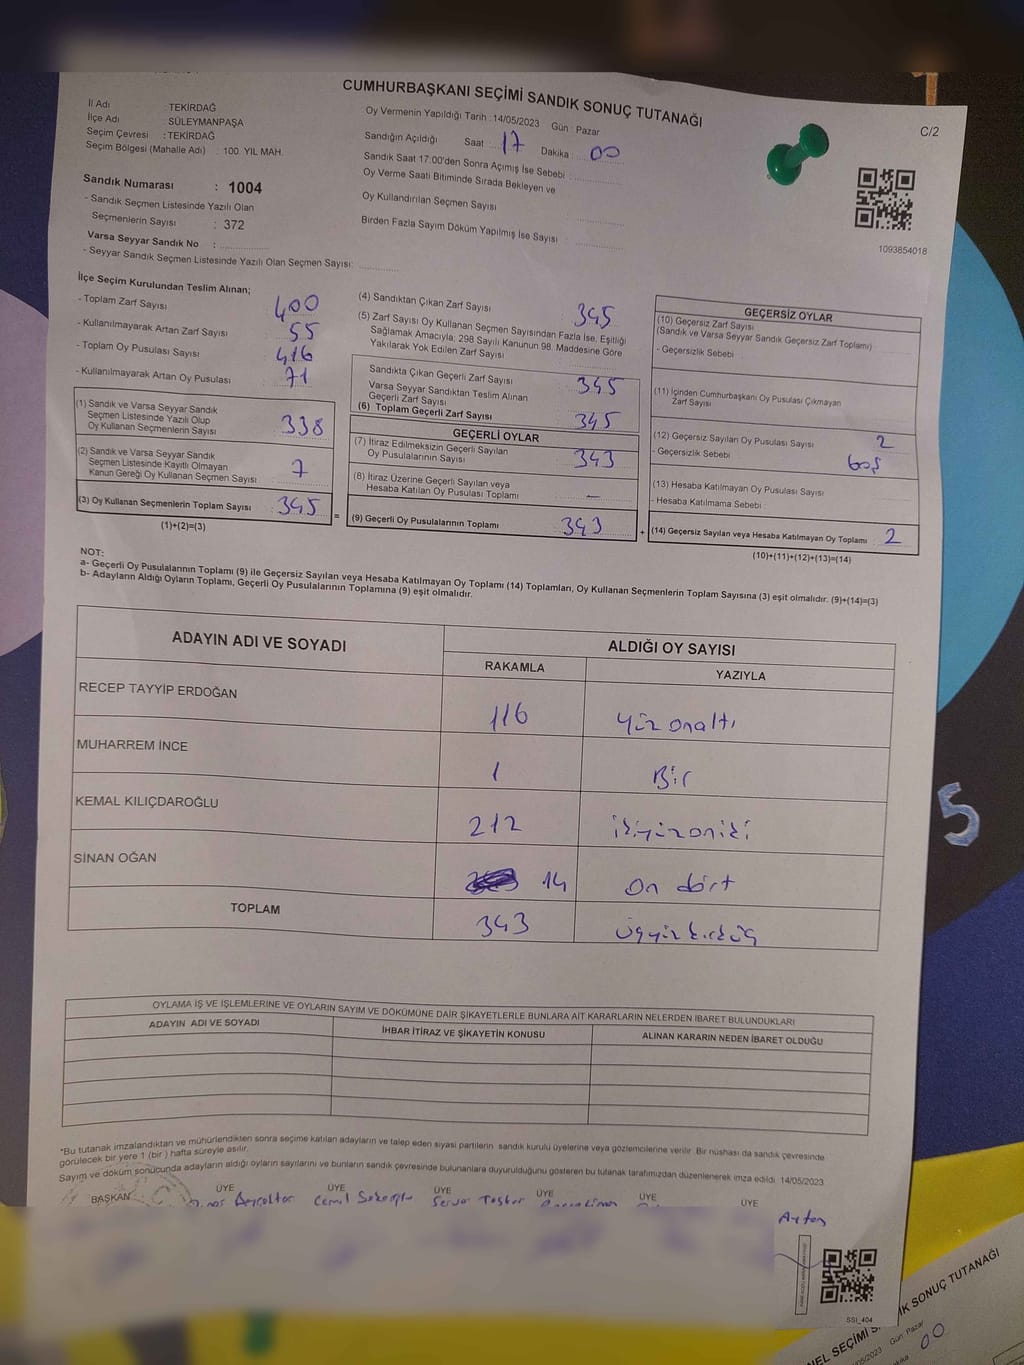 CUMHURBAŞKANI SEÇİMİ SANDIK SONUÇ TUTANAĞI
C/2
İl Adı : TEKİRDAĞ
İlçe Adı : SÜLEYMANPAŞA
Seçim Çevresi : TEKİRDAĞ
Seçim Bölgesi (Mahalle Adı) : 100. YIL MAH.
Oy Vermenin Yapıldığı Tarih : 14/05/2023 Gün : Pazar
Sandığın Açıldığı Saat : 17 Dakika : 00
Sandık Saat 17:00'den Sonra Açımış İse Sebebi :
Oy Verme Saati Bitiminde Sırada Bekleyen ve
Oy Kullandırılan Seçmen Sayısı
Birden Fazla Sayım Döküm Yapılmış İse Sayısı :
1093854018
Sandık Numarası : 1004
- Sandık Seçmen Listesinde Yazılı Olan
Seçmenlerin Sayısı : 372
Varsa Seyyar Sandık No :
- Seyyar Sandık Seçmen Listesinde Yazılı Olan Seçmen Sayısı:
İlçe Seçim Kurulundan Teslim Alınan;
- Toplam Zarf Sayısı 400
- Kullanılmayarak Artan Zarf Sayısı 55
- Toplam Oy Pusulası Sayısı 416
- Kullanılmayarak Artan Oy Pusulası 71
(1) Sandık ve Varsa Seyyar Sandık
Seçmen Listesinde Yazılı Olup
Oy Kullanan Seçmenlerin Sayısı 338
(2) Sandık ve Varsa Seyyar Sandık
Seçmen Listesinde Kayıtlı Olmayan
Kanun Gereği Oy Kullanan Seçmen Sayısı 7
(3) Oy Kullanan Seçmenlerin Toplam Sayısı 345
(1)+(2)=(3)
=
(4) Sandıktan Çıkan Zarf Sayısı 345
(5) Zarf Sayısı Oy Kullanan Seçmen Sayısından Fazla İse, Eşitliği
Sağlamak Amacıyla; 298 Sayılı Kanunun 98. Maddesine Göre
Yakılarak Yok Edilen Zarf Sayısı
Sandıkta Çıkan Geçerli Zarf Sayısı 345
Varsa Seyyar Sandıktan Teslim Alınan
Geçerli Zarf Sayısı
(6) Toplam Geçerli Zarf Sayısı 345
GEÇERLİ OYLAR
(7) İtiraz Edilmeksizin Geçerli Sayılan
Oy Pusulalarının Sayısı 343
(8) İtiraz Üzerine Geçerli Sayılan veya
Hesaba Katılan Oy Pusulası Toplamı –
(9) Geçerli Oy Pusulalarının Toplamı 343
+
GEÇERSİZ OYLAR
(10) Geçersiz Zarf Sayısı
(Sandık ve Varsa Seyyar Sandık Geçersiz Zarf Toplamı)
- Geçersizlik Sebebi
(11) İçinden Cumhurbaşkanı Oy Pusulası Çıkmayan
Zarf Sayısı
(12) Geçersiz Sayılan Oy Pusulası Sayısı 2
- Geçersizlik Sebebi boş
(13) Hesaba Katılmayan Oy Pusulası Sayısı
- Hesaba Katılmama Sebebi :
(14) Geçersiz Sayılan veya Hesaba Katılmayan Oy Toplamı 2
(10)+(11)+(12)+(13)=(14)
NOT:
a- Geçerli Oy Pusulalarının Toplamı (9) ile Geçersiz Sayılan veya Hesaba Katılmayan Oy Toplamı (14) Toplamları, Oy Kullanan Seçmenlerin Toplam Sayısına (3) eşit olmalıdır. (9)+(14)=(3)
b- Adayların Aldığı Oyların Toplamı, Geçerli Oy Pusulalarının Toplamına (9) eşit olmalıdır.
ADAYIN ADI VE SOYADI ALDIĞI OY SAYISI
RAKAMLA YAZIYLA
RECEP TAYYİP ERDOĞAN 116 Yüz onaltı
MUHARREM İNCE 1 Bir
KEMAL KILIÇDAROĞLU 212 ikiyüzoniki
SİNAN OĞAN 14 On dört
TOPLAM 343 üçyüzkırküç
5
OYLAMA İŞ VE İŞLEMLERİNE VE OYLARIN SAYIM VE DÖKÜMÜNE DAİR ŞİKAYETLERLE BUNLARA AİT KARARLARIN NELERDEN İBARET BULUNDUKLARI
ADAYIN ADI VE SOYADI İHBAR İTİRAZ VE ŞİKAYETİN KONUSU ALINAN KARARIN NEDEN İBARET OLDUĞU
*Bu tutanak imzalandıktan ve mühürlendikten sonra seçime katılan adayların ve talep eden siyasi partilerin sandık kurulu üyelerine veya gözlemcilerine verilir. Bir nüshası da sandık çevresinde
görülecek bir yere 1 (bir) hafta süreyle asılır.
Sayım ve döküm sonucunda adayların aldığı oyların sayılarını ve bunların sandık çevresinde bulunanlara duyurulduğunu gösteren bu tutanak tarafımızdan düzenlenerek imza edildi. 14/05/2023
BAŞKAN ÜYE ÜYE ÜYE ÜYE ÜYE ÜYE
Cemil Servar
SSİ_404
SONUÇ TUTANAĞI
Gün Pazar
00